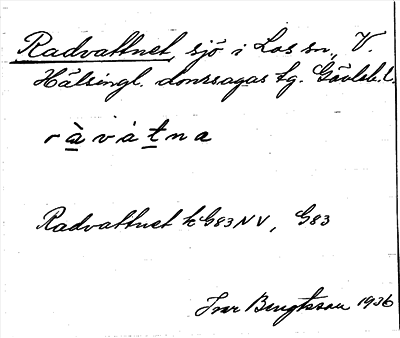 Radvattnet, sjö i Los sn., V.
Hälsingl. domsagas tg. Gävleb. l.
r à v á t n a
Radvattnet k G83NV, G83
Ivar Bengtsson 1936